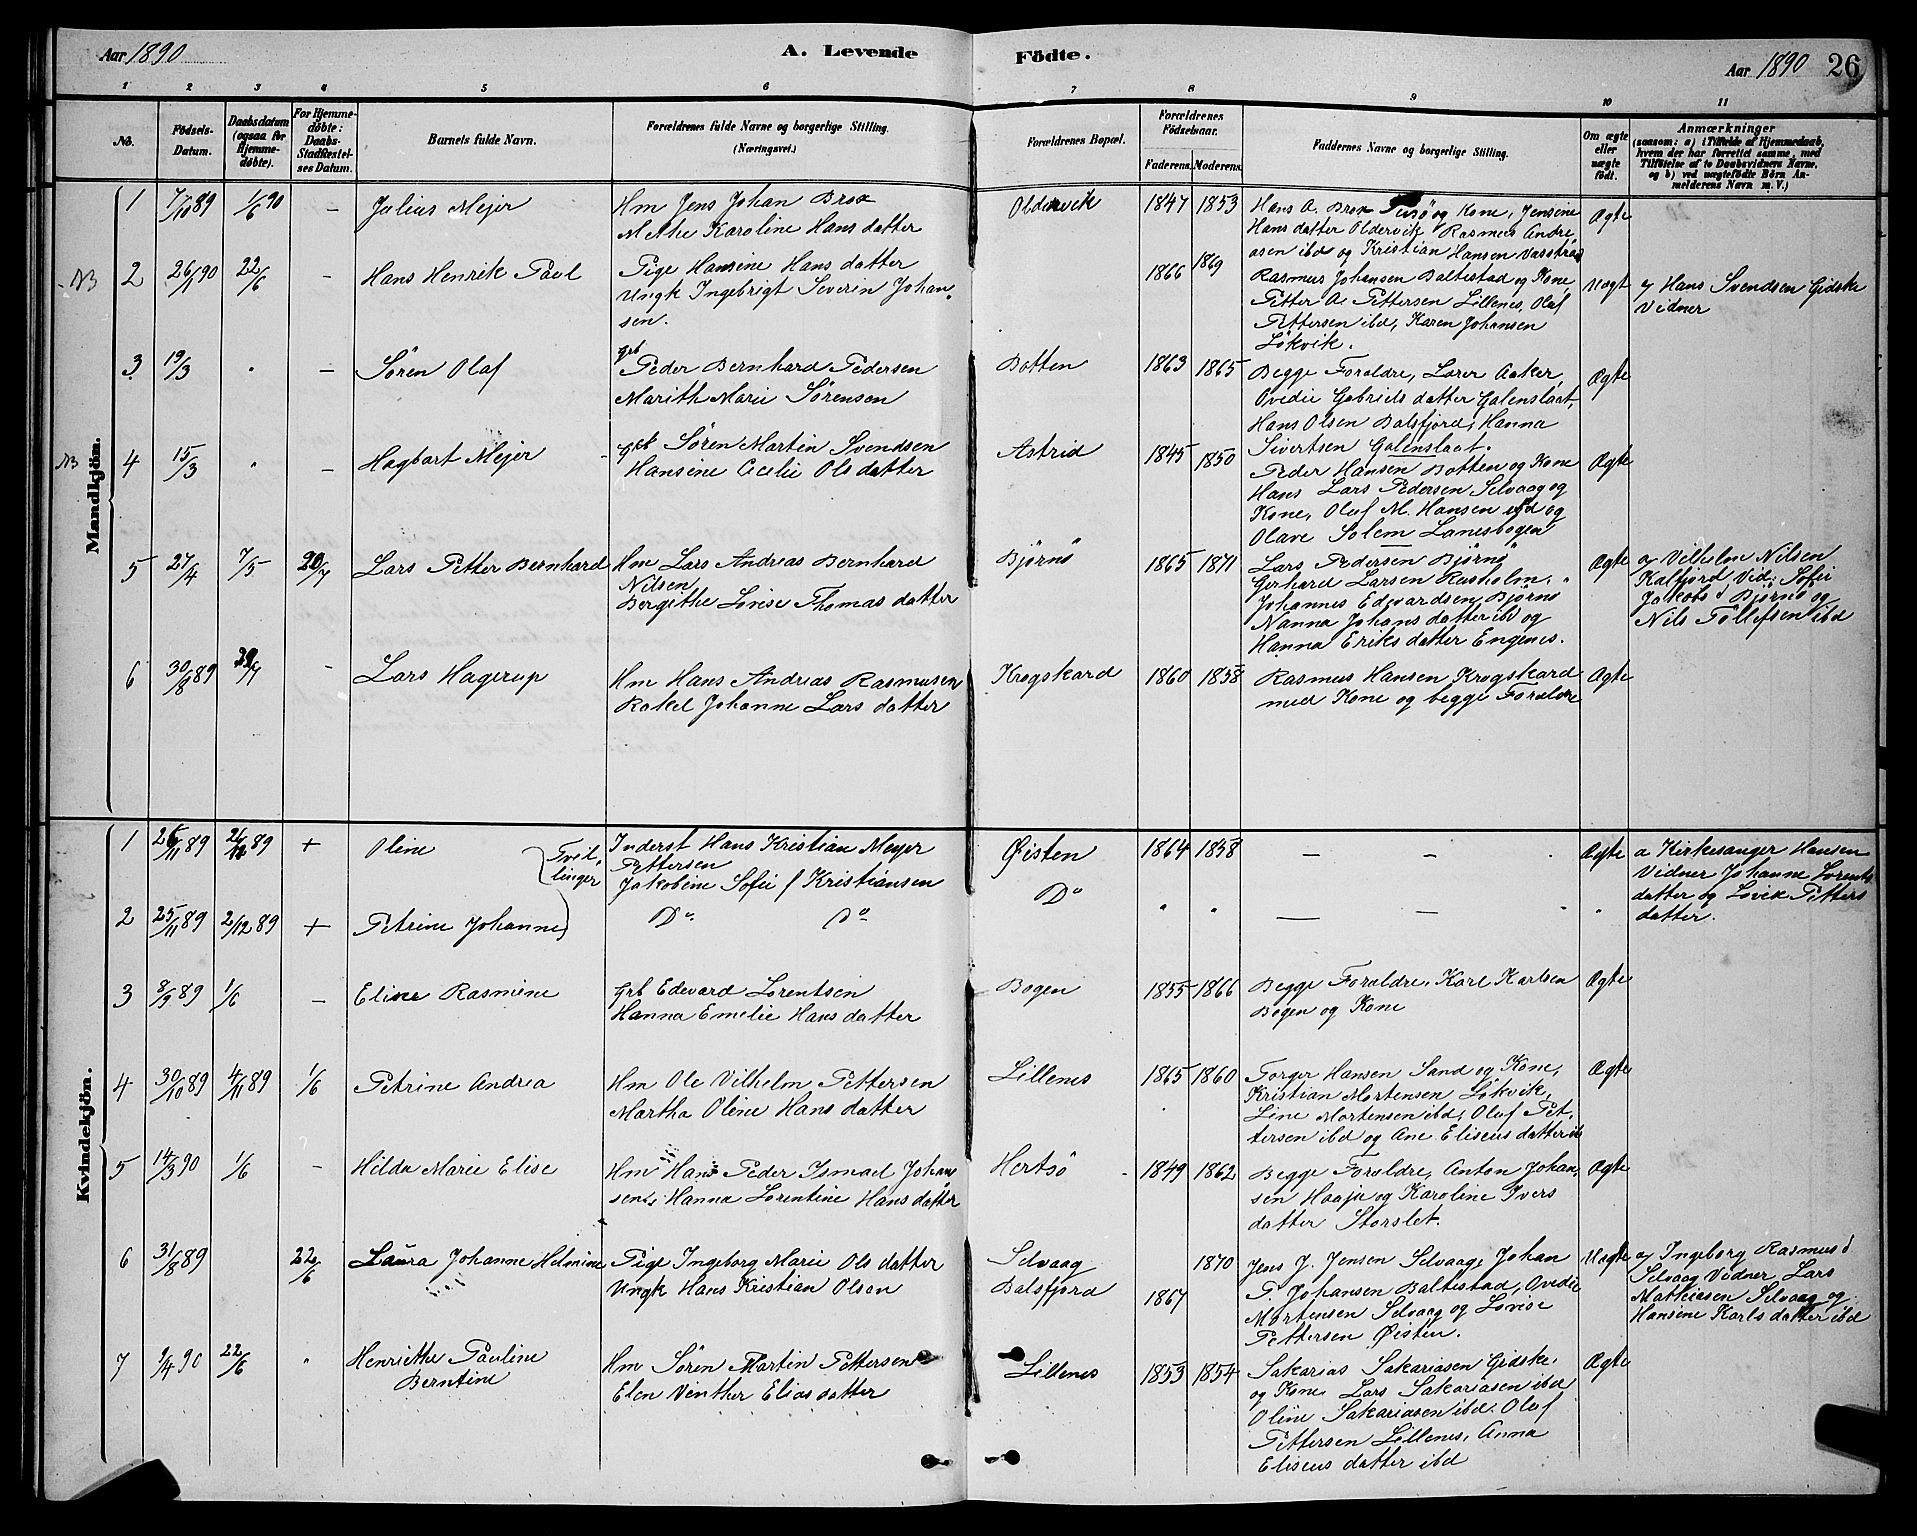 Aar 1890
A. Levende
Födte.
Aar 1890
26
1 2 3 4 5 6 7 8 9 10 11
No.
Födsels-Datum.
Daabsdatum (ogsaa for Hjemme-døbte).
For Hjemme-døbte: Daabs-Stadfæstel-ses Datum.
Barnets fulde Navn.
Forældrenes fulde Navne og borgerlige Stilling.
(Næringsvei.)
Forældrenes Bopæl.
Forældrenes Födselsaar.
Faderens. Moderens.
Faddernes Navne og borgerlige Stilling.
Om ægte eller uægte födt.
Anmærkninger
(saasom: a) i Tilfælde af Hjemmedaab,
hvem der har forrettet samme, med
Tilföielse af to Daabsvidners Navne,
og b) ved uægtefödte Börn An-
melderens Navn m. V.)
Mandkjön.
1 7/10 89 1/6 90 – Julius Mejer
Hm Jens Johan Brox
Methe Karoline Hans datter
Oldervik 1847 1853
Hans A. Brox og Kone, Jensine
Hans datter Oldervik Rasmus Andre
asen ibd og Kristian Hansen Vasstrand
Ægte
NB 2 26/1 90 22/6 – Hans Henrik Paul
Pige Hansine Hans datter
Ungk Ingebrigt Severin Johan-
sen.
1866 1869
Rasmus Johansen Baltestad og Kone,
Petter A. Pettersen Lillenes, Olaf
Pettersen ibd, Karen Johansen
Lökvik.
Uægt
a/ Hans Svendsen Gidske
Vidner
3 19/3 " – Sören Olaf
grb Peder Bernhard Pedersen
Marith Marie Sörensen
Botten 1863 1865
Begge Forældre, Lærer Aaker,
Ovedie Gabriels datter Galenslaat,
Hans Olsen Balsfjord, Hanna
Sivertsen Galenslaat.
Ægte
NB 4 15/3 " – Hagbart Mejer
grb Sören Martin Svendsen
Hansene Cecilie Ols datter
Astrid 1845 1850
Peder Hansen Botten og Kone
Hans Lars Pedersen Selvaag og
Kone, Oluf M. Hansen ibd og
Olave Solem Lanesbogen
Ægte
5 27/4 7/5 20/7 Lars Petter Bernhard
Hm Lars Andreas Bernhard
Nilsen
Bergithe Lovise Thomas datter
Björnö 1865 1871
Lars Pedersen Björnö
Gerhard Larsen Rusholm,
Johannes Edvardsen Björnö
Nanna Johans datter ibd og
Hanna Eriks datter Engenes.
Ægte
a/ Vilhelm Nilsen
Kalfjord, Vid: Sofie
Jakobs d Björnö og
Nils Tollefsen ibd
6 30/8 89 20/7 – Lars Hagerup
Hm Hans Andreas Rasmusen
Rakel Johanne Lars datter
Krogskard 1860 1858
Rasmus Hansen Krogskard
med Kone og begge Forældre
Ægte
Kvindekjön.
1 25/11 89 2/12 89 + Oline
Tvil-
linger
Inderst Hans Kristian Meyer
Pettersen
Jakobine Sofie f Kristiansen
Øisten 1864 1858 – –
Ægte
a Kirkesanger Hansen
Vidner Johanne Lorents
datter og Lovise Petters
datter.
2 25/11 89 2/12 89 + Petrine Johanne
Do Do
Do " " – – "
3 8/9 89 1/6 – Eline Rasmine
grb Edevard Lorentsen
Hanna Emelie Hans datter
Bogen 1855 1866
Begge Forældre, Karl Karlsen
Bogen og Kone
Ægte
4 30/10 89 4/11 89 1/6 Petrine Andrea
Hm Ole Vilhelm Pettersen
Martha Oline Hans datter
Lillenes 1865 1860
Torger Hansen Sand og Kone,
Kristian Mortensen Lökvik,
Line Mortensen ibd, Olaf Pet-
tersen ibd og Ane Eliseus datter ib
Ægte
5 14/3 90 1/6 – Hilda Marie Elise
Hm Hans Peder Ismael Johan
sen, Hanna Lorentine Hans datter
Hertsö 1849 1862
Begge Forældre, Anton Johan-
sen Haaja og Karoline Ivers
datter Storslet.
Ægte
6 31/8 89 22/6 Laura Johanne Helmine
Pige Ingeborg Marie Ols datter
Ungk Hans Kristian Olsen
Selvaag 1870
Balsfjord 1867
Jens J. Jensen Selvaag, Johan
P. Johansen Baltestad, Ovedie
Mortensen Selvaag og Lovise
Pettersen Øisten.
Uægte
a/ Ingeborg Rasmus d
Selvaag Vidner, Lars
Mathiasen Selvaag og
Hansine Karls datter ibd
7 9/4 90 22/6 " Henriethe Pauline
Berntine
Hm Sören Martin Pettersen
Elen Vinther Elias datter
Lillenes 1853 1854
Sakarias Sakariasen Gidske,
og Kone, Lars Sakariasen ibd
Oline Sakariasen ibd. Olaf
Pettersen Lillenes, Anna
Eliseus datter ibd
Ægte